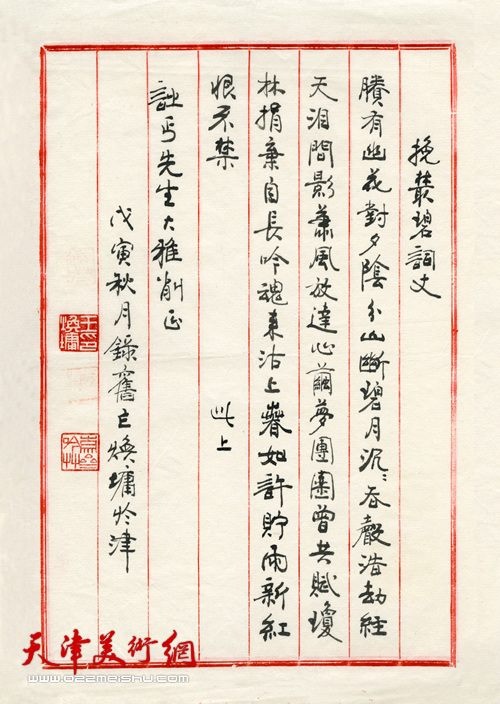 挽叢碧詞丈
賸有幽花對夕陰分山斷碧月沉〻吞聲浩劫經
天泪問影蕭風放達心繭夢團圞曾共賦瓊
林捐棄自長吟魂來沽上春如許貯雨新紅
恨不禁 此上
丐先生大雅削正
戊寅秋月錄舊王煥墉於津
王印煥墉
天津美術網
www.022meishu.com